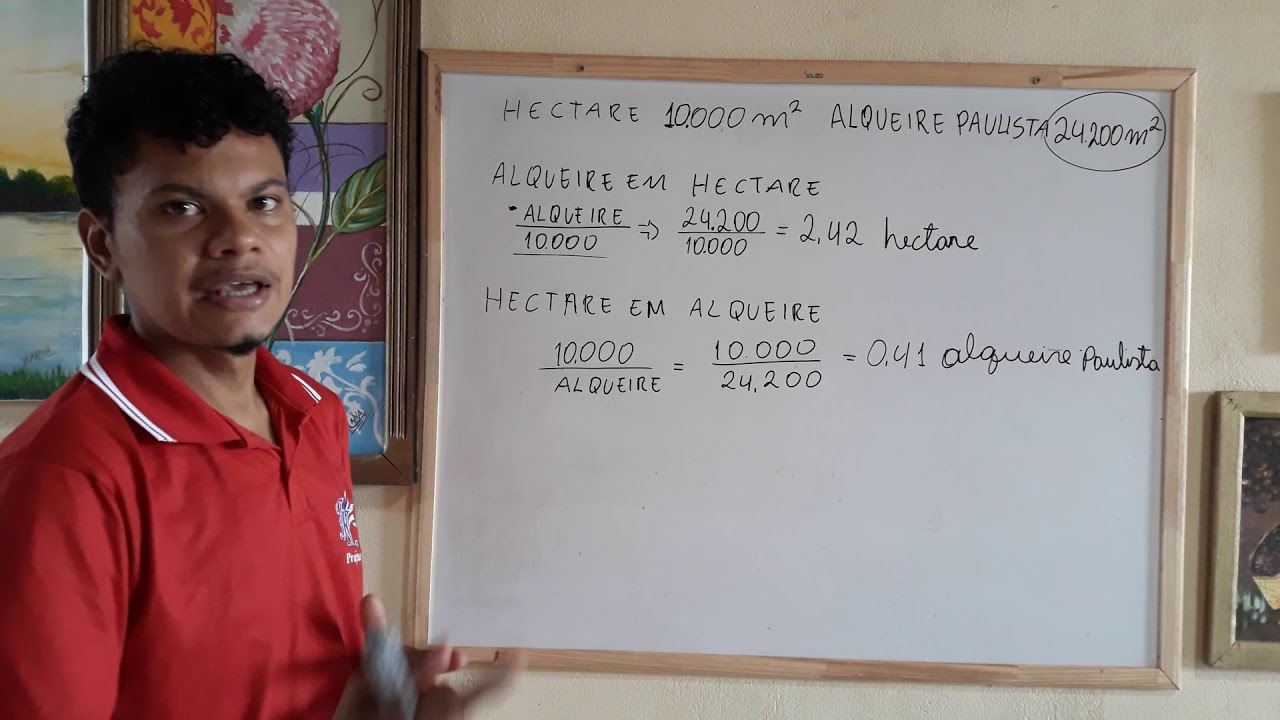 SOUZA
HECTARE 10.000 m² ALQUEIRE PAULISTA 24.200 m²
ALQUEIRE EM HECTARE
• ALQUEIRE / 10.000 ⇒ 24.200 / 10.000 = 2,42 hectare
HECTARE EM ALQUEIRE
10.000 / ALQUEIRE = 10.000 / 24,200 = 0,41 alqueire Paulista